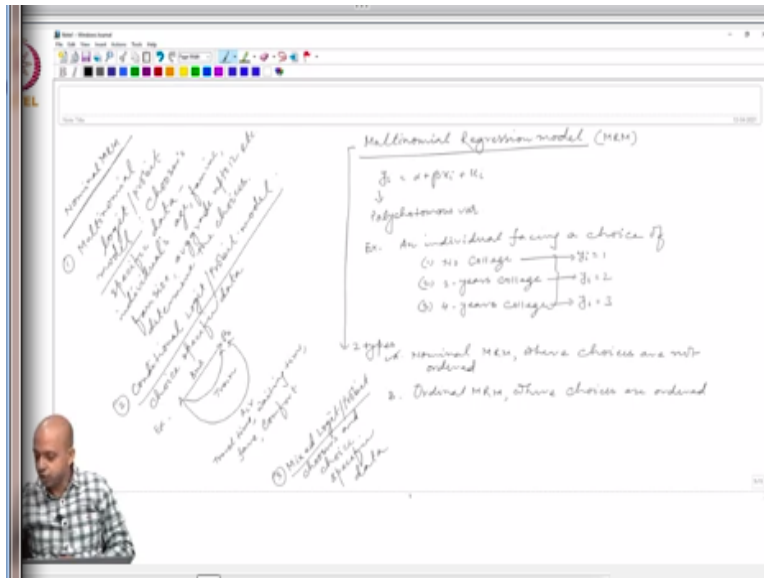 Note1 - Windows Journal
File Edit View Insert Actions Tools Help
Page Width
B I
Note Title
EL
Multinomial Regression model (MRM)
yi = α+βxi+ui
↓
Polychotomous var
Ex. An individual facing a choice of
(1) No college → yi=1
(2) 2-years college → yi=2
(3) 4-years college → yi=3
2 types
Nominal MRM, where choices are not
ordered
B. Ordinal MRM, where choices are ordered
Nominal MRM
① Multinomial
logit/Probit
model: Chooser's
specific data -
individual's age, family
determine the choices.
② Conditional Logit/Probit model
choice specific data
Ex.
A Bus B
Train
Air
Travel time, waiting time,
fare, comfort
③ Mixed Logit/Probit
chooser's and
choice
specific
data